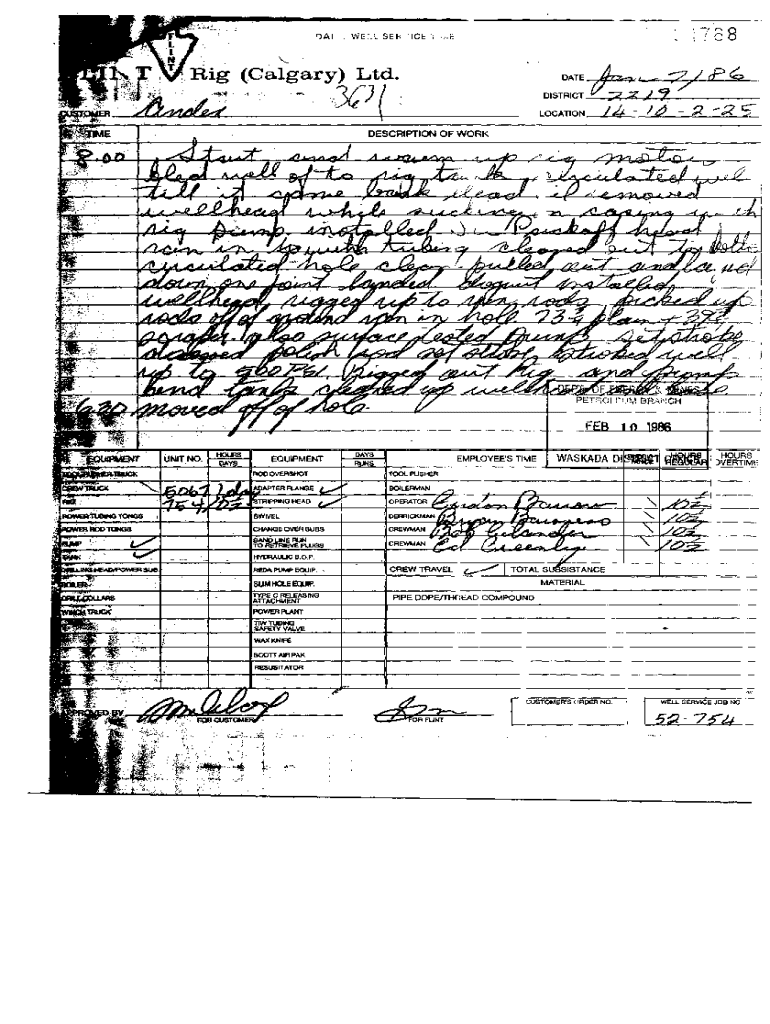 1788
FLINT Rig (Calgary) Ltd.
DATE Jan 7/86
3631
DISTRICT 2219
CUSTOMER Andex
LOCATION 14-10-2-25
TIME DESCRIPTION OF WORK
8.00 Start and warm up rig motor
bled well of to rig tank, circulated well
till it came back dead. removed
wellhead while sucking on casing with
rig pump, installed Packoff head
ran in with tubing cleaned out to
circulated hole clean, pulled out and
down one joint landed installed
wellhead, rigged up to run rods, picked up
rods off of ground ran in hole 73 plain + 39
scraper also surface tested pump set stroke
polish rod stroked well
up to 500 PSI. Rigged out Rig and pump
and tank cleaned up wellhead
DEPT. OF ENERGY & MINES
PETROLEUM BRANCH
6.30 moved off of hole.
FEB 10 1986
WASKADA DISTRICT OFFICE
EQUIPMENT UNIT NO. HOURS DAYS EQUIPMENT DAYS RUNS EMPLOYEE'S TIME HOURS REGULAR HOURS OVERTIME
ROD OVERSHOT TOOL PUSHER
CREW TRUCK 5067 1 day ADAPTER FLANGE ✓ BOILERMAN
RIG 754 10½ STRIPPING HEAD ✓ OPERATOR Gordon 10½
POWER TUBING TONGS SWIVEL DERRICKMAN Bryan 10½
POWER ROD TONGS CHANGE OVER SUBS CREWMAN Bob 10½
PUMP ✓ SAND LINE RUN TO RETRIEVE PLUGS CREWMAN Ed Greenley 10½
TANK ✓ HYDRAULIC B.O.P.
DRILLING HEAD/POWER SUB REDA PUMP EQUIP. CREW TRAVEL ✓ TOTAL SUBSISTANCE
BOILER SLIM HOLE EQUIP. MATERIAL
DRILL COLLARS TYPE C RELEASING ATTACHMENT PIPE DOPE/THREAD COMPOUND
WINCH TRUCK POWER PLANT
TIW TUBING SAFETY VALVE
WAX KNIFE
SCOTT AIR PAK
RESUSITATOR
APPROVED BY FOR CUSTOMER
FOR FLINT
CUSTOMER'S ORDER NO.
WELL SERVICE JOB NO
52-754